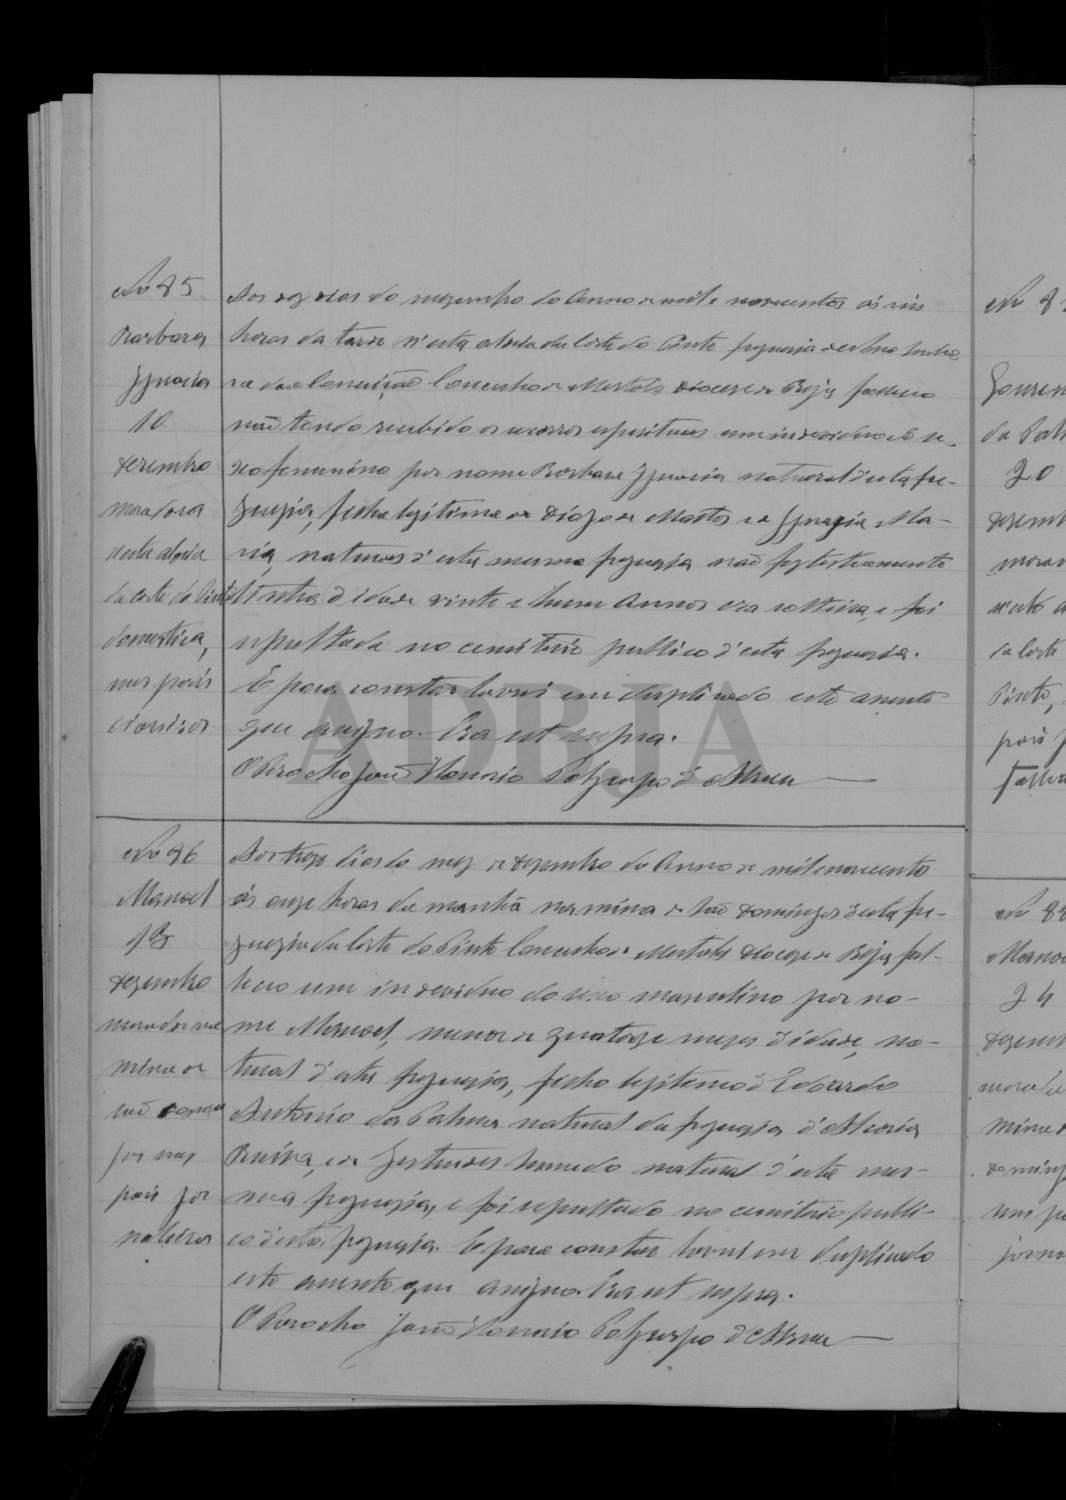 No 85
Barbara
Ignacia
10
dezembro
moradora
nesta aldeia
da Corte do Pinto
domestica,
seus pais
Aos dez dias do mez de dezembro do anno de mil e novecentos ás seis
horas da tarde n'esta aldeia da Corte do Pinto freguesia de Nossa Senho-
ra da Conceição Concelho de Mertola diocese de Beja falleceu
não tendo recebido os socorros espirituaes um individuo do se-
xo femenino por nome Barbara Ignacia natural d'esta fre-
guezia, filha legitima de Diogo de Mattos e de Ignacia Ma-
ria, naturaes d'esta mesma freguezia não fez testamento
d'idade vinte e hum annos era solteira, e foi
sepultada no cemiterio publico d'esta freguezia.
E para constar lavrei em duplicado este assento
que assigno. Era ut supra.
O Parocho José d'Abreu
No 86
Manoel
13
dezembro
morador na
mina de
São Domin
gos seus
pais jor
naleiros
Aos treze dias do mez de dezembro do anno de mil e novecentos
ás onze horas da manhã na mina de São Domingos d'esta fre-
guezia da Corte do Pinto Concelho de Mertola diocese de Beja fal-
leceu um individuo do sexo masculino por no-
me Manoel, menor de quatorze mezes d'idade, na-
tural d'esta freguezia, filho legitimo d'Eduardo
Antonio da Palma natural da freguezia d'Aldeia
e de Gertrudes natural d'esta mes-
ma freguezia, e foi sepultado no cemiterio publi-
co d'esta freguezia. E para constar lavrei em duplicado
este assento que assigno. Era ut supra.
O Parocho José d'Abreu
No 8
da Pal
20
dezemb
morad
n'esta a
da Corte
Pinto,
pais j
No 88
Mano
24
dezem
morado
mina
domin
seus pa
jorna
ADBJA